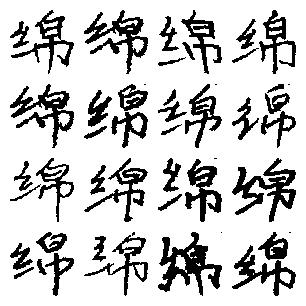 绵绵绵绵
绵绵绵绵
绵绵绵绵
绵绵绵绵